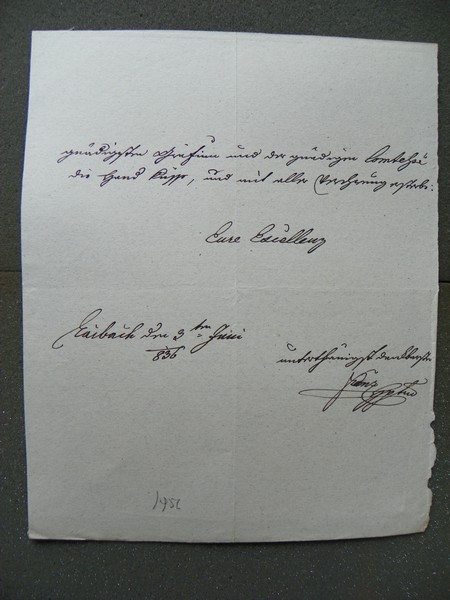 gnädigsten Gräfinn und der gnädigen Comtesse
die Hand küsse, und mit aller Verehrung ersterbe.
Eure Excellenz
Laibach den 3ten Juni
836
unterthänigst
Franz
1952